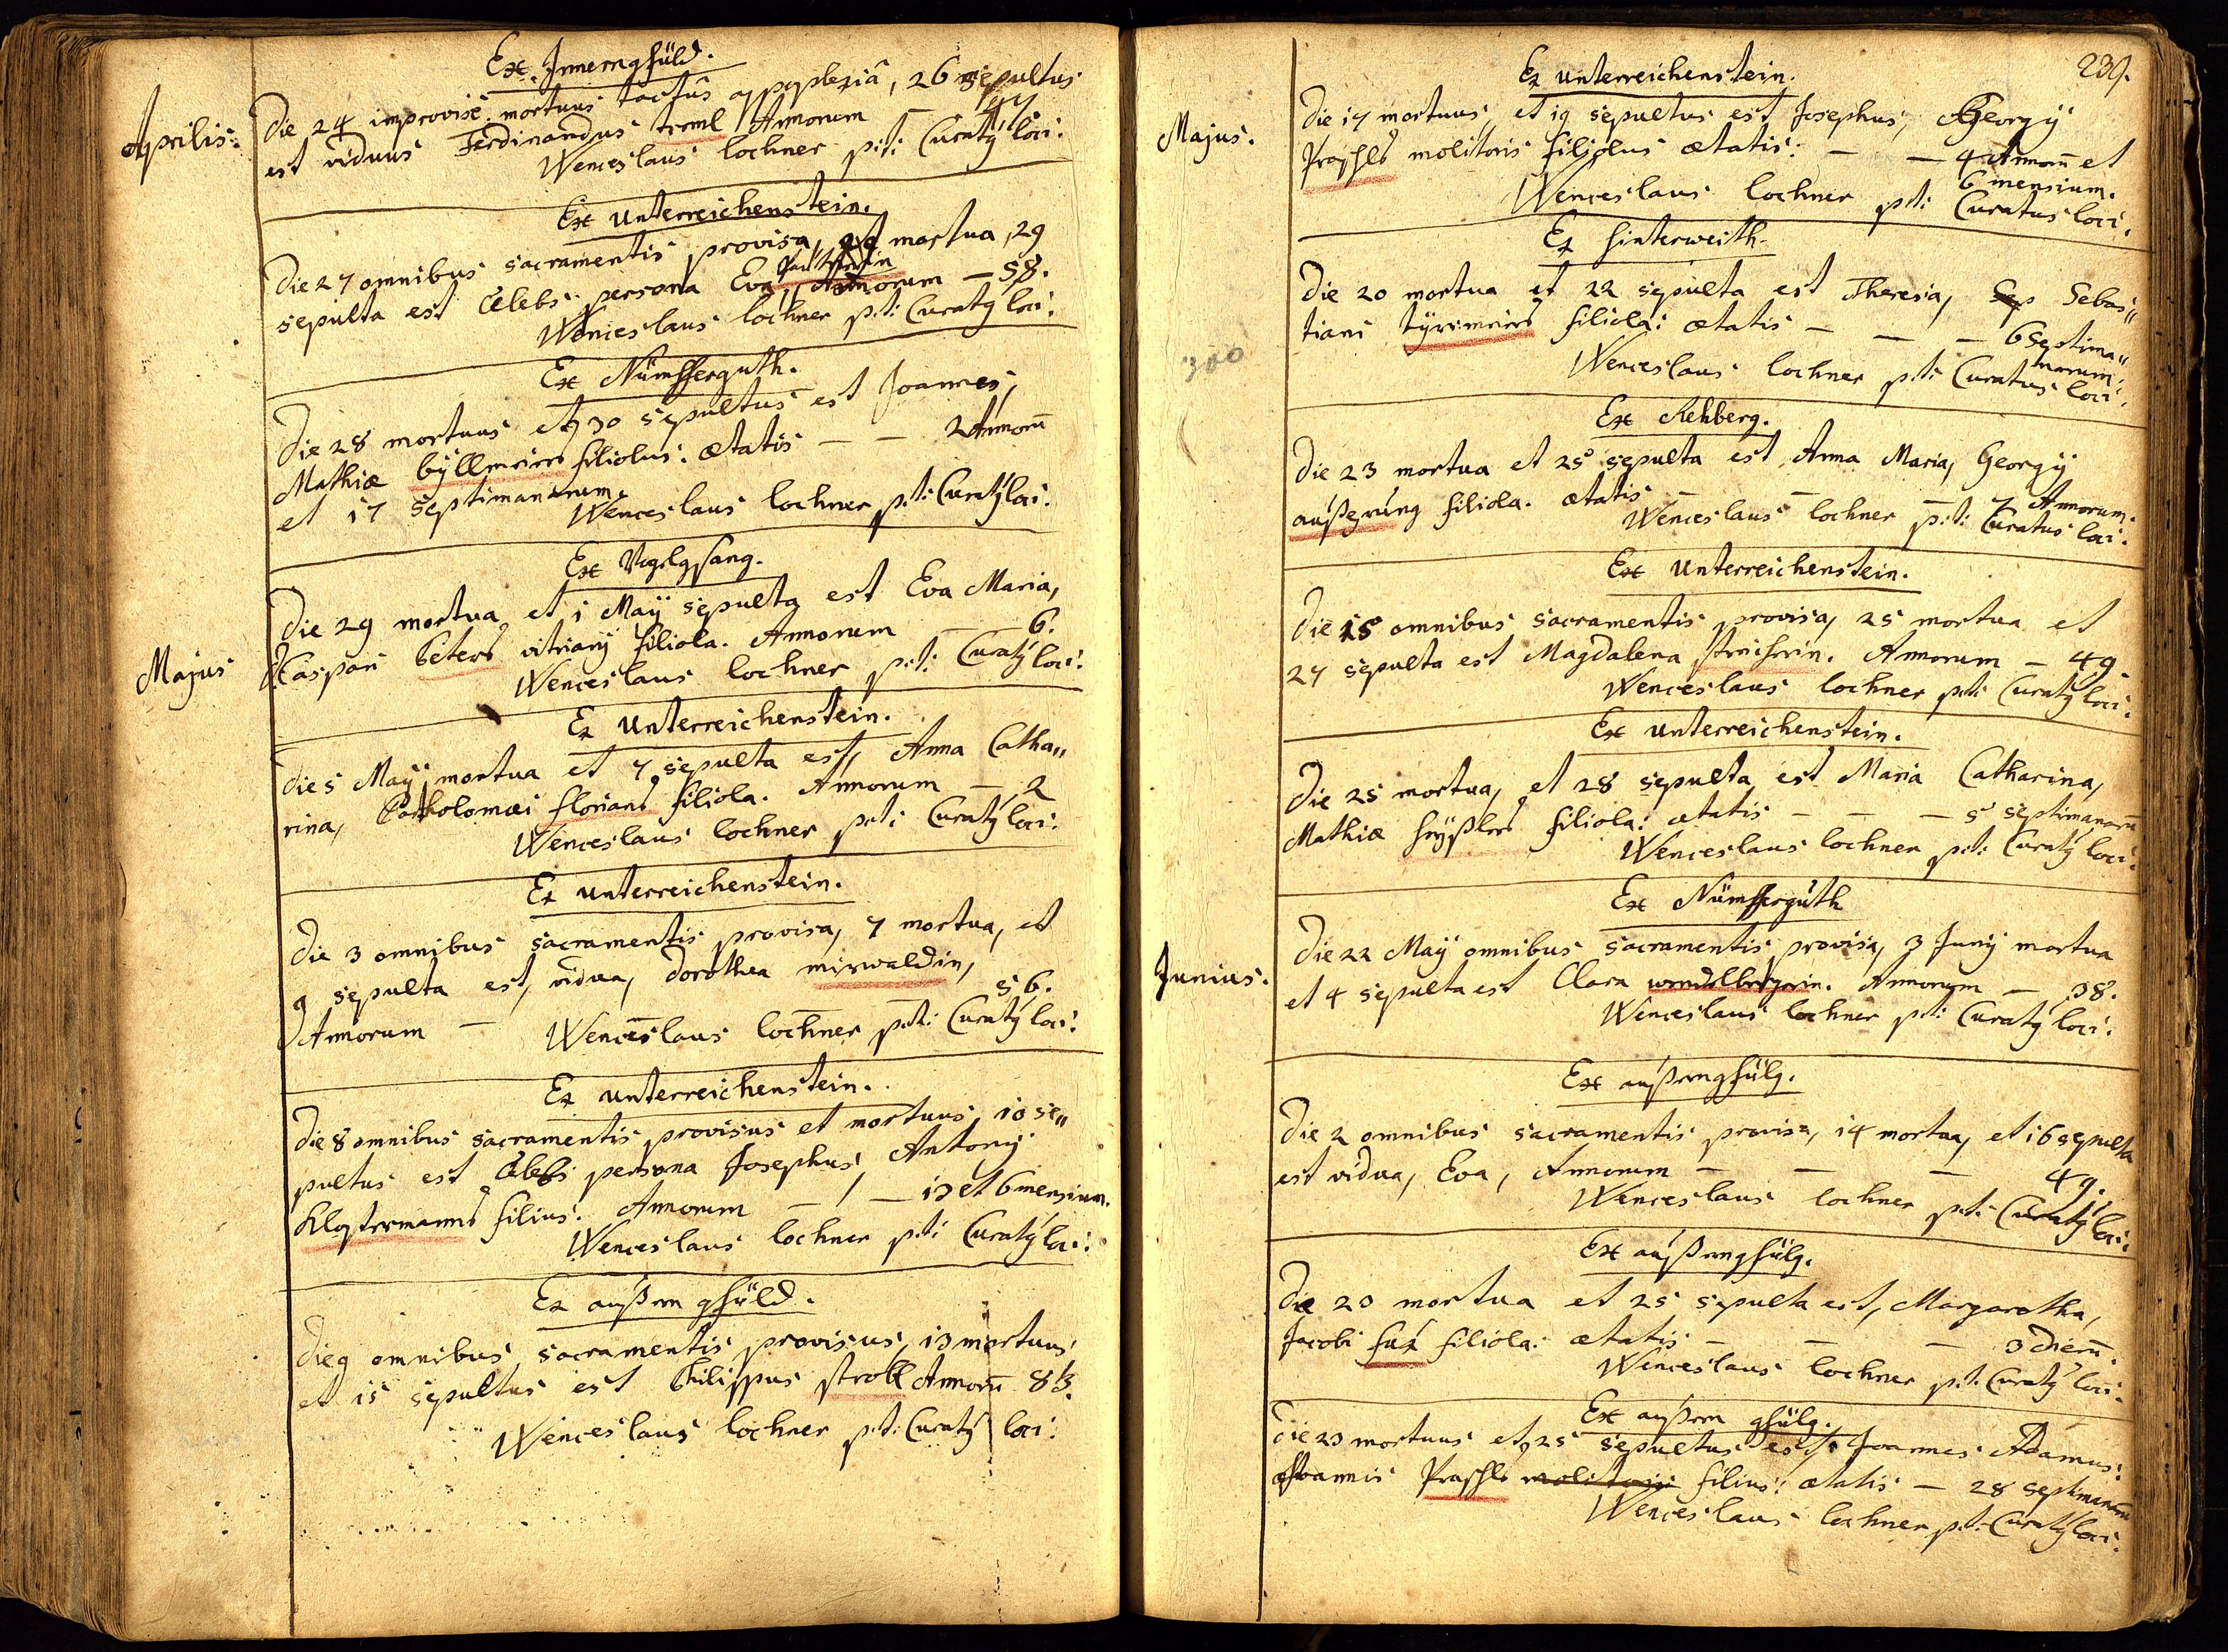 Ex Innerngfüld.
Aprilis:
Die 24 improvisè mortuus tactus appoplexiâ, 26 sepultus
est viduus Ferdinandus treml Annorum 47
Wenceslaus lochner p:t: Curatȳ loci.
Ex Unterreichenstein.
Die 27 omnibus sacramentis provisa, mortua, 29
sepulta est cælebs persona Eva Annorum — 58.
Wenceslaus lochner p:t: Curatȳ loci.
Ex Nümsserguth.
Die 28 mortuus et 30 sepultus est Joannes,
Mathiæ filiolus: ætatis — — 2 Annorū
et 17 septimanarum.
Wenceslaus lochner p:t: Curatȳ loci.
Ex Voglgsang.
Die 29 mortua et 1 Maÿ sepulta est Eva Maria,
Majus
Caspari Peters vitriarÿ filiola. Annorum — 6.
Wenceslaus lochner p:t: Curatȳ loci.
Ex Unterreichenstein.
Die 5 Maÿ mortua et 7 sepulta est, Anna Catha„
rina, Bartholomæi florians filiola. Annorum — 2
Wenceslaus lochner p:t: Curatȳ loci.
Ex unterreichenstein.
Die 3 omnibus sacramentis provisa, 7 mortua, et
9 sepulta est, vidua, dorothea mirwaldin,
Annorum — 56.
Wenceslaus lochner p:t: Curatȳ loci.
Ex unterreichenstein.
Die 8 omnibus sacramentis provisus et mortuus, 10 se„
pultus est cælebs persona Josephus, Antonÿ
Klostermanns filius. Annorum — 13 et 6 mensium.
Wenceslaus lochner p:t: Curatȳ loci.
Ex außern gfüld.
Die 9 omnibus sacramentis provisus, 13 mortuus
et 15 sepultus est Philippus strobl Annorū 83.
Wenceslaus lochner p:t: Curatȳ loci.
239.
Ex unterreichenstein.
Majus.
Die 17 mortuus, et 19 sepultus est Josephus, Georgÿ
Praschls molitoris filiolus ætatis: — — 4 Annorū et
6 mensium.
Wenceslaus lochner p:t: Curatus loci.
Ex hinterweith.
Die 20 mortua et 22 sepulta est Theresia, Sep Sebas„
tiani filiola: ætatis — — 6 septima„
narum.
300
Wenceslaus lochner p:t: Curatus loci.
Ex Rehberg.
Die 23 mortua et 25 sepulta est Anna Maria, Georgÿ
filiola. ætatis — — 7 Annorum.
Wenceslaus lochner p:t: Curatus loci.
Ex Unterreichenstein.
Die 15 omnibus sacramentis provisa, 25 mortua et
27 sepulta est Magdalena Annorum — 49.
Wenceslaus lochner p:t: Curatȳ loci.
Ex unterreichenstein.
Die 25 mortua, et 28 sepulta est Maria Catharina,
Mathiæ filiola: ætatis — — 5 septimanarū
Wenceslaus lochner p:t: Curatȳ loci.
Ex Nümsserguth
Die 22 Maÿ omnibus sacramentis provisa, 3 Junÿ mortua
Junius.
et 4 sepulta est Clara wendelbergerin. Annorum — 38.
Wenceslaus lochner p:t: Curatȳ loci.
Ex außerngfülg.
Die 2 omnibus sacramentis provisa, 14 mortua, et 16 sepulta
est vidua, Eva, Annorum — — 49.
Wenceslaus lochner p:t: Curatȳ loci.
Ex außerngfülg.
Die 23 mortua et 25 sepulta est, Margaretha,
Jacobi fux filiola: ætatis — — 3 dierū.
Wenceslaus lochner p:t: Curatȳ loci.
Ex außern gfülg.
Die 23 mortuus et 25 sepultus est, Joannes Adamus:
Joannis Praschls molitoris filius: ætatis — 28 septimanarū
Wenceslaus lochner p:t: Curatȳ loci.